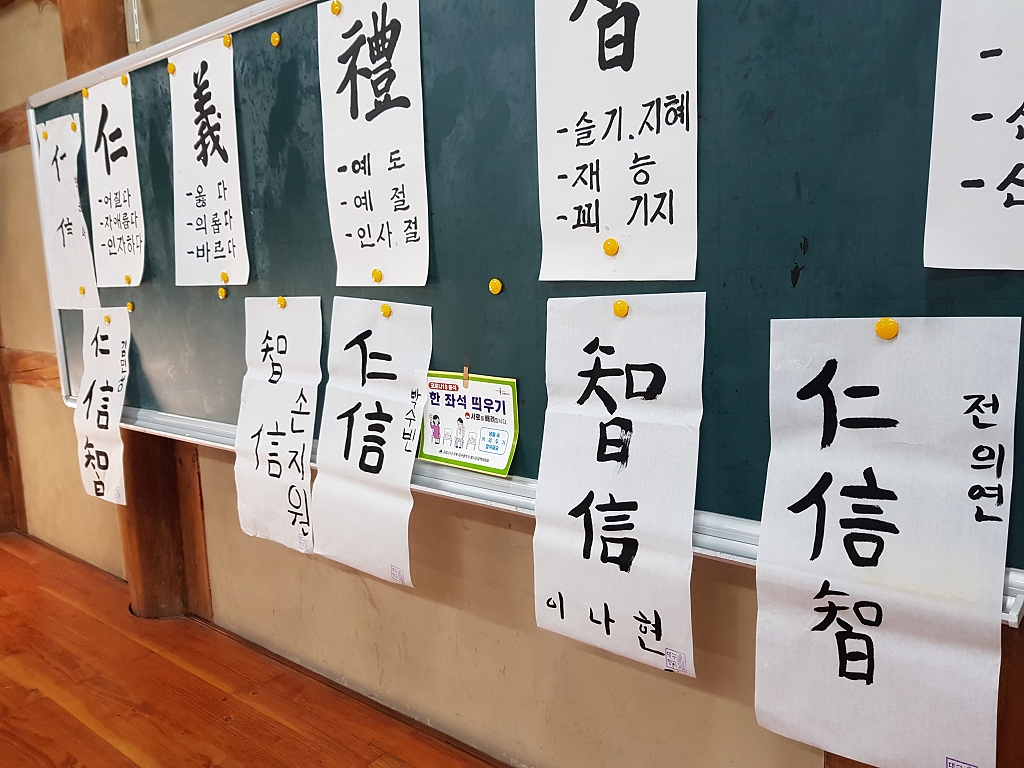 仁
信
仁
-어질다
-자애롭다
-인자하다
義
-옳다
-의롭다
-바르다
禮
-예도
-예절
-인사절
智
-슬기.지혜
-재능
-꾀 기지
仁
信
智
智
信
손지원
仁
信
박수빈
한 좌석 띄우기
서로를 배려합니다.
智
信
이나현
仁
信
智
전의연